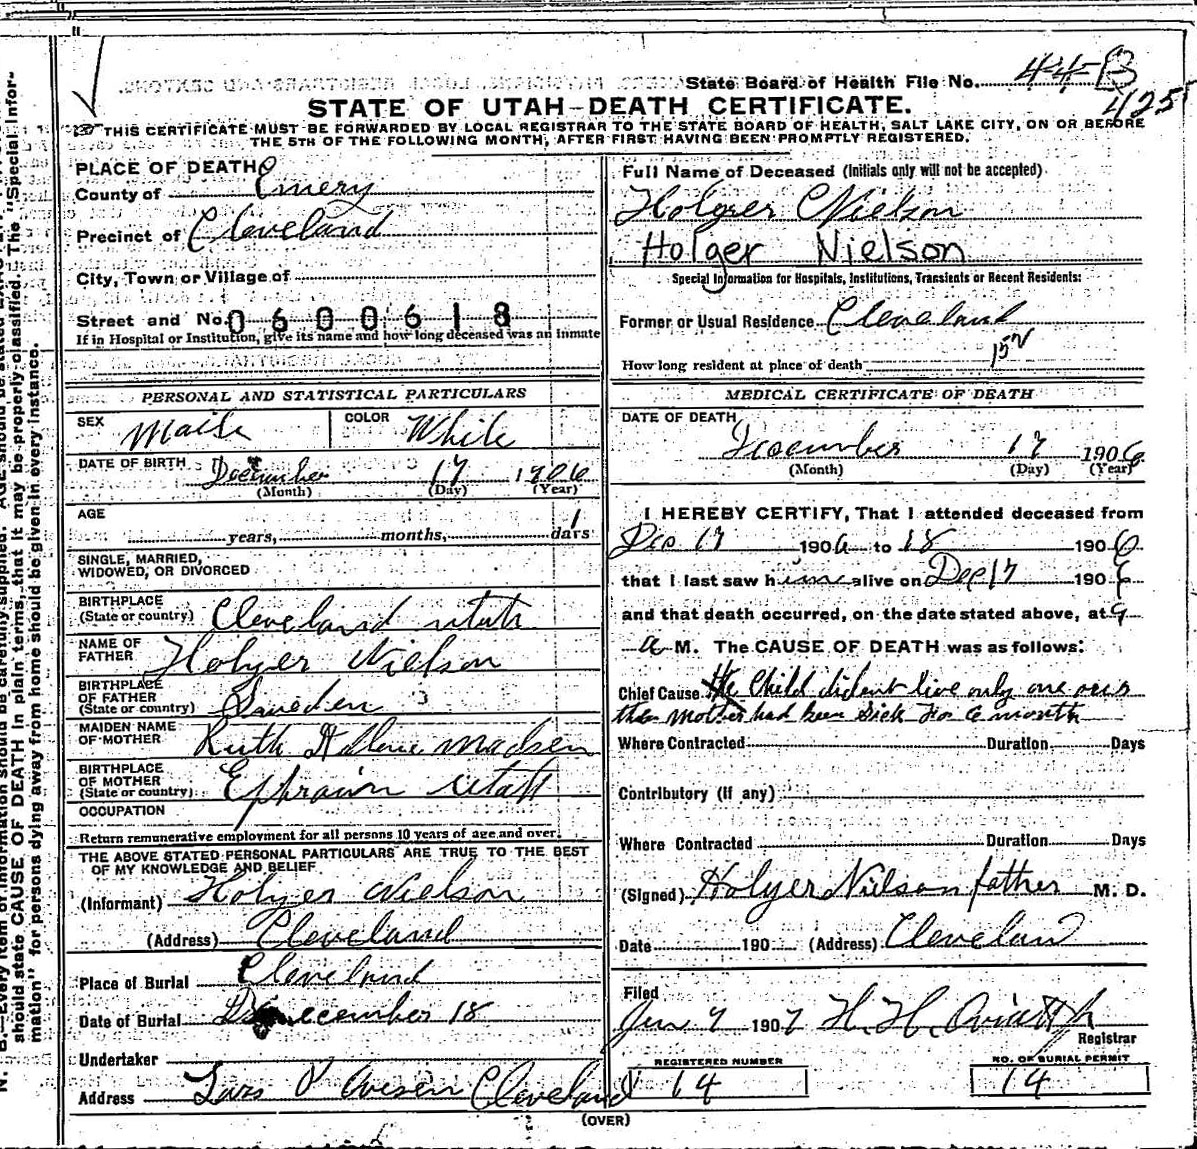 State Board of Health File No. 44-B
425
STATE OF UTAH—DEATH CERTIFICATE.
THIS CERTIFICATE MUST BE FORWARDED BY LOCAL REGISTRAR TO THE STATE BOARD OF HEALTH, SALT LAKE CITY, ON OR BEFORE
THE 5TH OF THE FOLLOWING MONTH, AFTER FIRST HAVING BEEN PROMPTLY REGISTERED.
PLACE OF DEATH
County of Emery
Precinct of Cleveland
City, Town or Village of
Street and No. 0600618
If in Hospital or Institution, give its name and how long deceased was an inmate
PERSONAL AND STATISTICAL PARTICULARS
SEX COLOR White
DATE OF BIRTH December 17 1906
(Month) (Day) (Year)
AGE
years, months, 1 days
SINGLE, MARRIED,
WIDOWED, OR DIVORCED
BIRTHPLACE
(State or country) Cleveland utah
NAME OF
FATHER Holger Nielson
BIRTHPLACE
OF FATHER
(State or country) Sweden
MAIDEN NAME
OF MOTHER Ruth Madsen
BIRTHPLACE
OF MOTHER
(State or country) Ephraim utah
OCCUPATION
Return remunerative employment for all persons 10 years of age and over.
THE ABOVE STATED PERSONAL PARTICULARS ARE TRUE TO THE BEST
OF MY KNOWLEDGE AND BELIEF
(Informant) Holger Nielson
(Address) Cleveland
Place of Burial Cleveland
Date of Burial December 18
Undertaker
Address Lars P Cleveland
Full Name of Deceased (Initials only will not be accepted)
Holger Nielson
Holger Nielson
Special Information for Hospitals, Institutions, Transients or Recent Residents:
Former or Usual Residence Cleveland
How long resident at place of death
MEDICAL CERTIFICATE OF DEATH
DATE OF DEATH
December 17 1906
(Month) (Day) (Year)
I HEREBY CERTIFY, That I attended deceased from
Dec 17 1906 to 18 1906
that I last saw him alive on Dec 17 1906
and that death occurred, on the date stated above, at 9
a M. The CAUSE OF DEATH was as follows:
Chief Cause the Child dident live only one
the Mother had been Sick for 6 month
Where Contracted Duration Days
Contributory (if any)
Where Contracted Duration Days
(Signed) Holger Nielson father M. D.
Date 190 (Address) Cleveland
Filed
Jan 7 1907 H. H.
Registrar
REGISTERED NUMBER
14
NO. OF BURIAL PERMIT
14
(OVER)
N. B.—Every item of information should be carefully supplied. AGE should be stated
should state CAUSE OF DEATH in plain terms, that it may be properly classified. The "Special Infor-
mation" for persons dying away from home should be given in every instance.